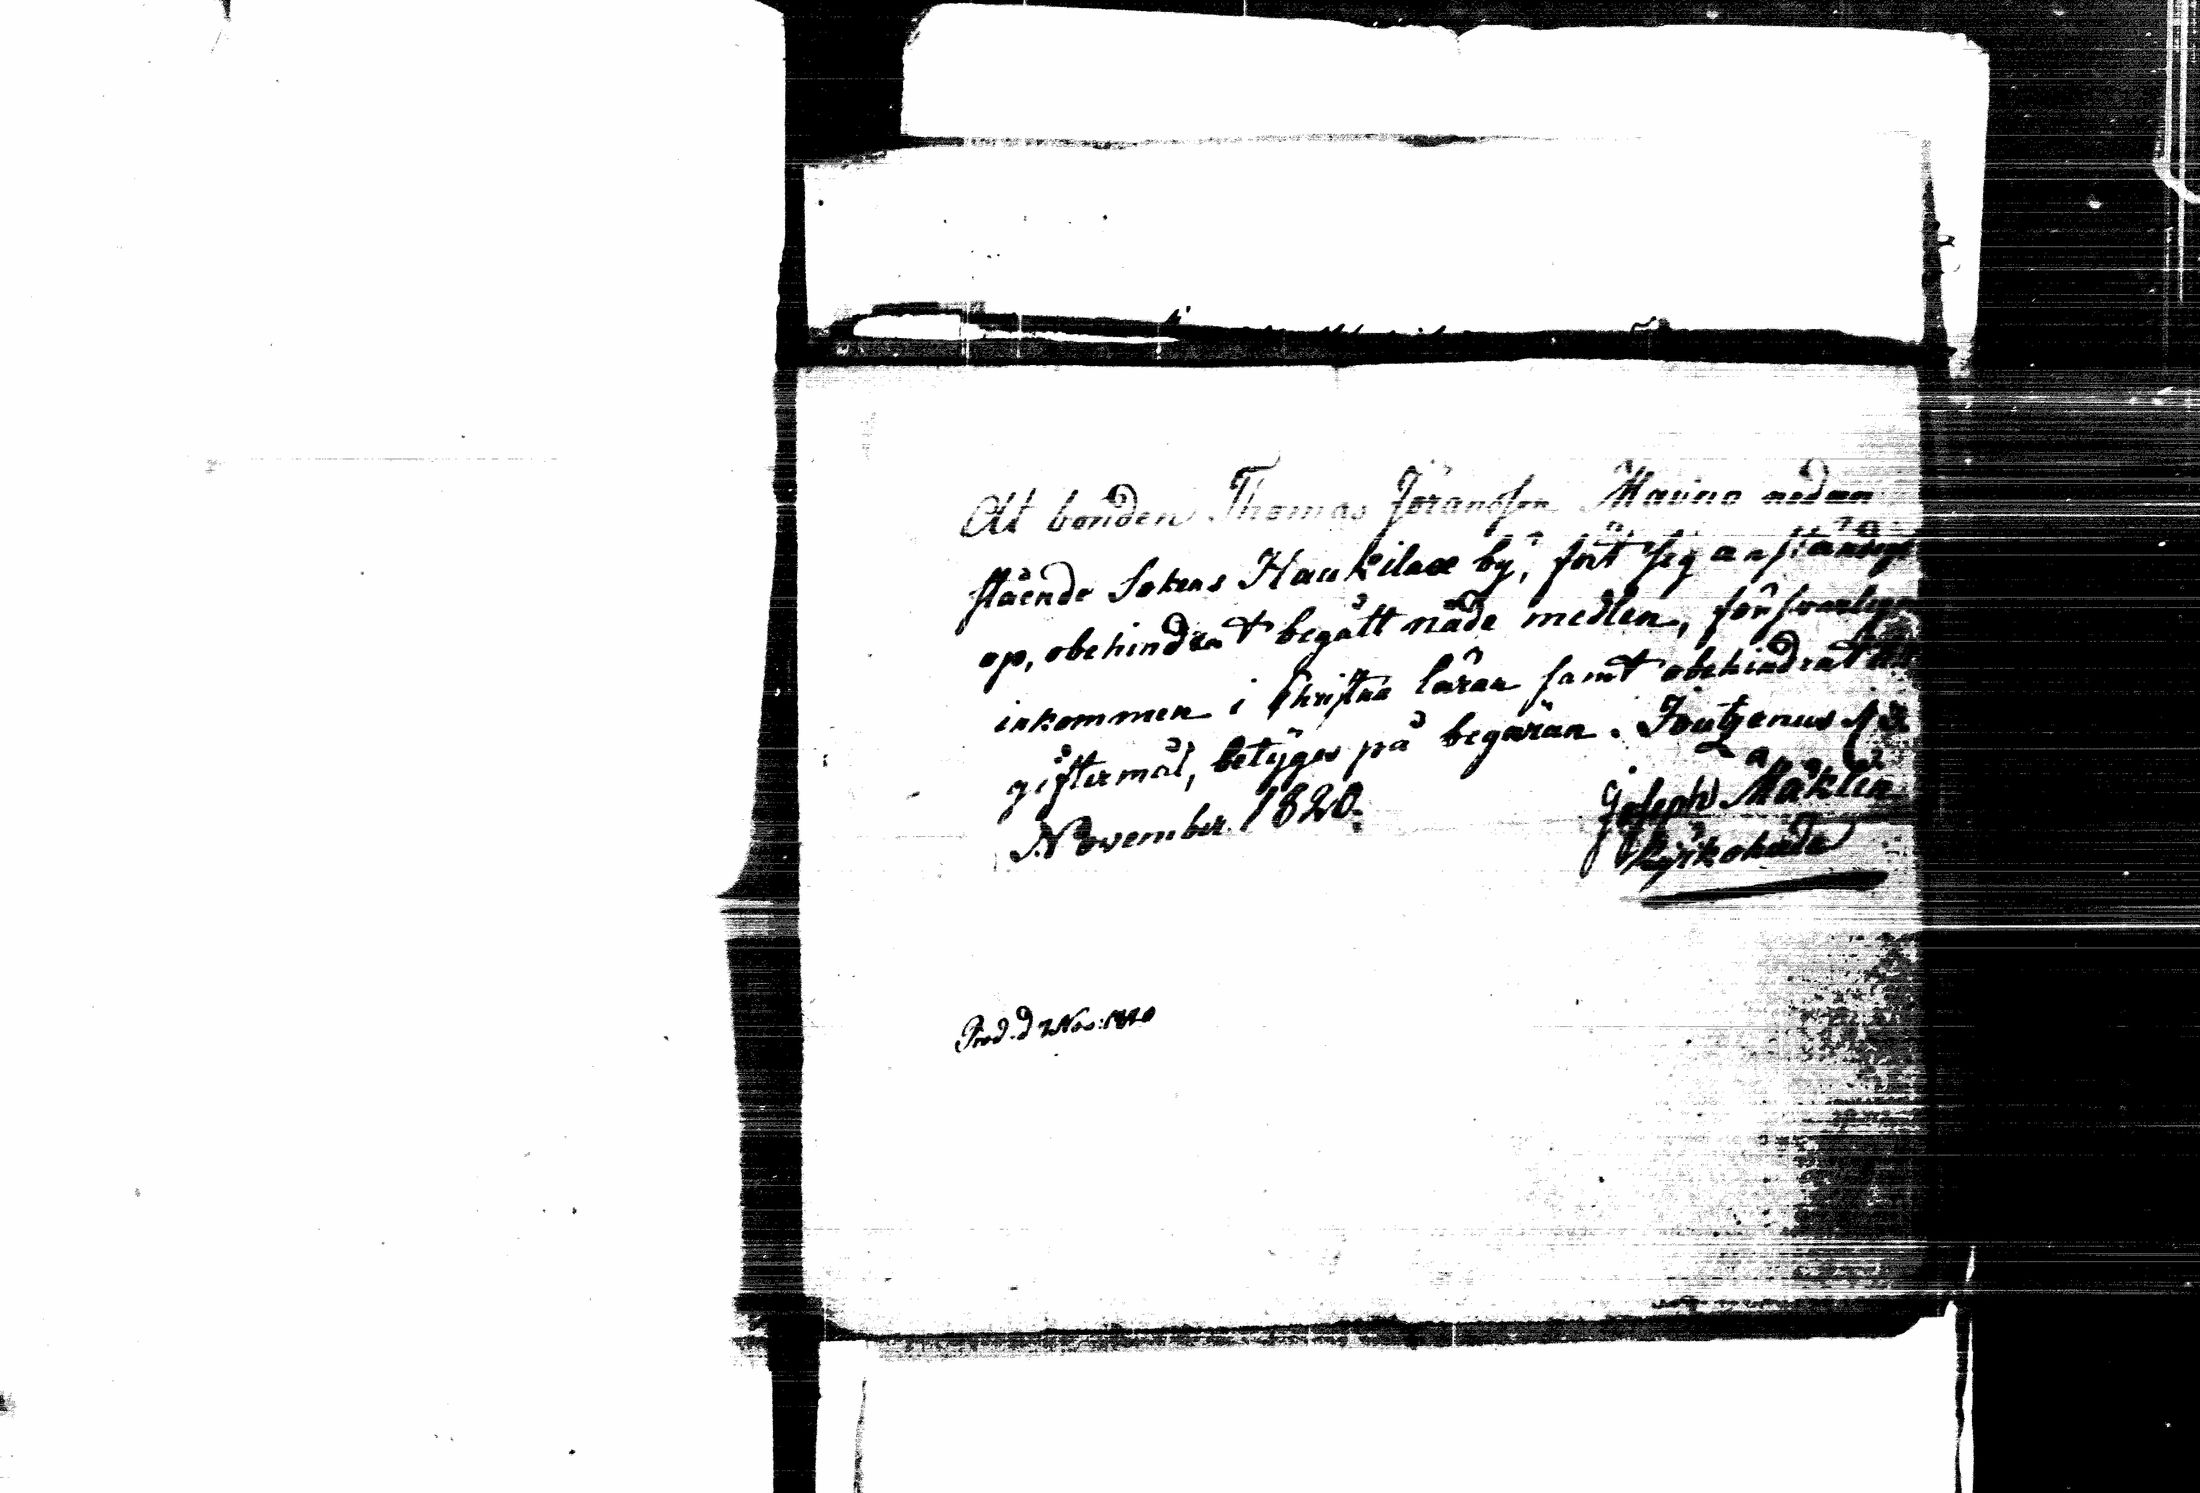 At bonden Thomas Jöransson Mauno nedan
stående Sokens Haukilax by, fört sig anständigt
op, obehindrat begått nåde medlen, försvarligen
inkommen i Christna läran samt obehindrat till
giftermål, betyges på begäran. Joutzenus d. 2
November 1820.
Joseph Mäklin
Kyrkoherde
Prod. d 7 Nov: 1820